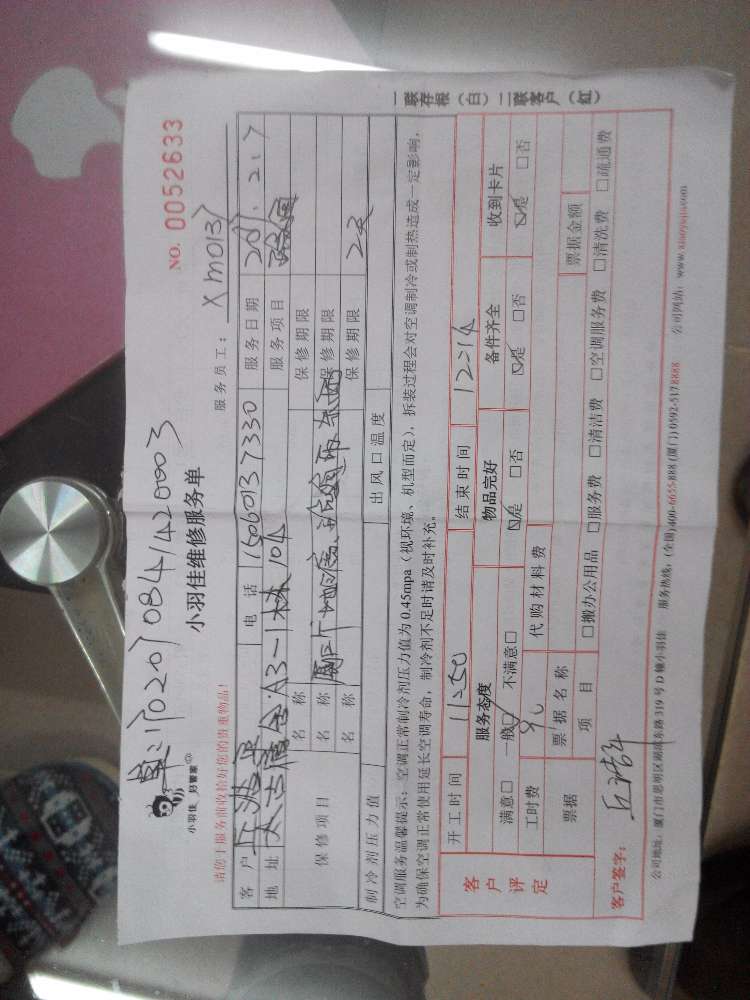 一联存根（白）二联客户（红）
NO. 0052633
小羽佳 好管家
小羽佳维修服务单
服务员工： XM0137
请您上服务前收拾好您的贵重物品！
客户 电话 15060137330 服务日期
地址 A3-1 104 服务项目
保修项目 名称 保修期限
名称 保修期限
名称 保修期限
制冷剂压力值 出风口温度
空调服务温馨提示：空调正常制冷剂压力值为0.45mpa（视环境、机型而定），拆装过程会对空调制冷或制热造成一定影响，
为确保空调正常使用延长空调寿命，制冷剂不足时请及时补充。
客户评定
开工时间 11:50 结束时间 12:14
服务态度 物品完好 备件齐全 收到卡片
满意□ 一般□ 不满意□ □是 □否 □是 □否 □是 □否
工时费 90 代购材料费
票据 票据名称 票据金额
项目 □搬办公用品 □服务费 □清洁费 □空调服务费 □清洗费 □疏通费
客户签字：
公司地址：厦门市思明区湖滨东路319号D幢小羽佳 服务热线：(全国)400-6655-888 (厦门)0592-5178888 公司网站：www.xiaoyujia.com